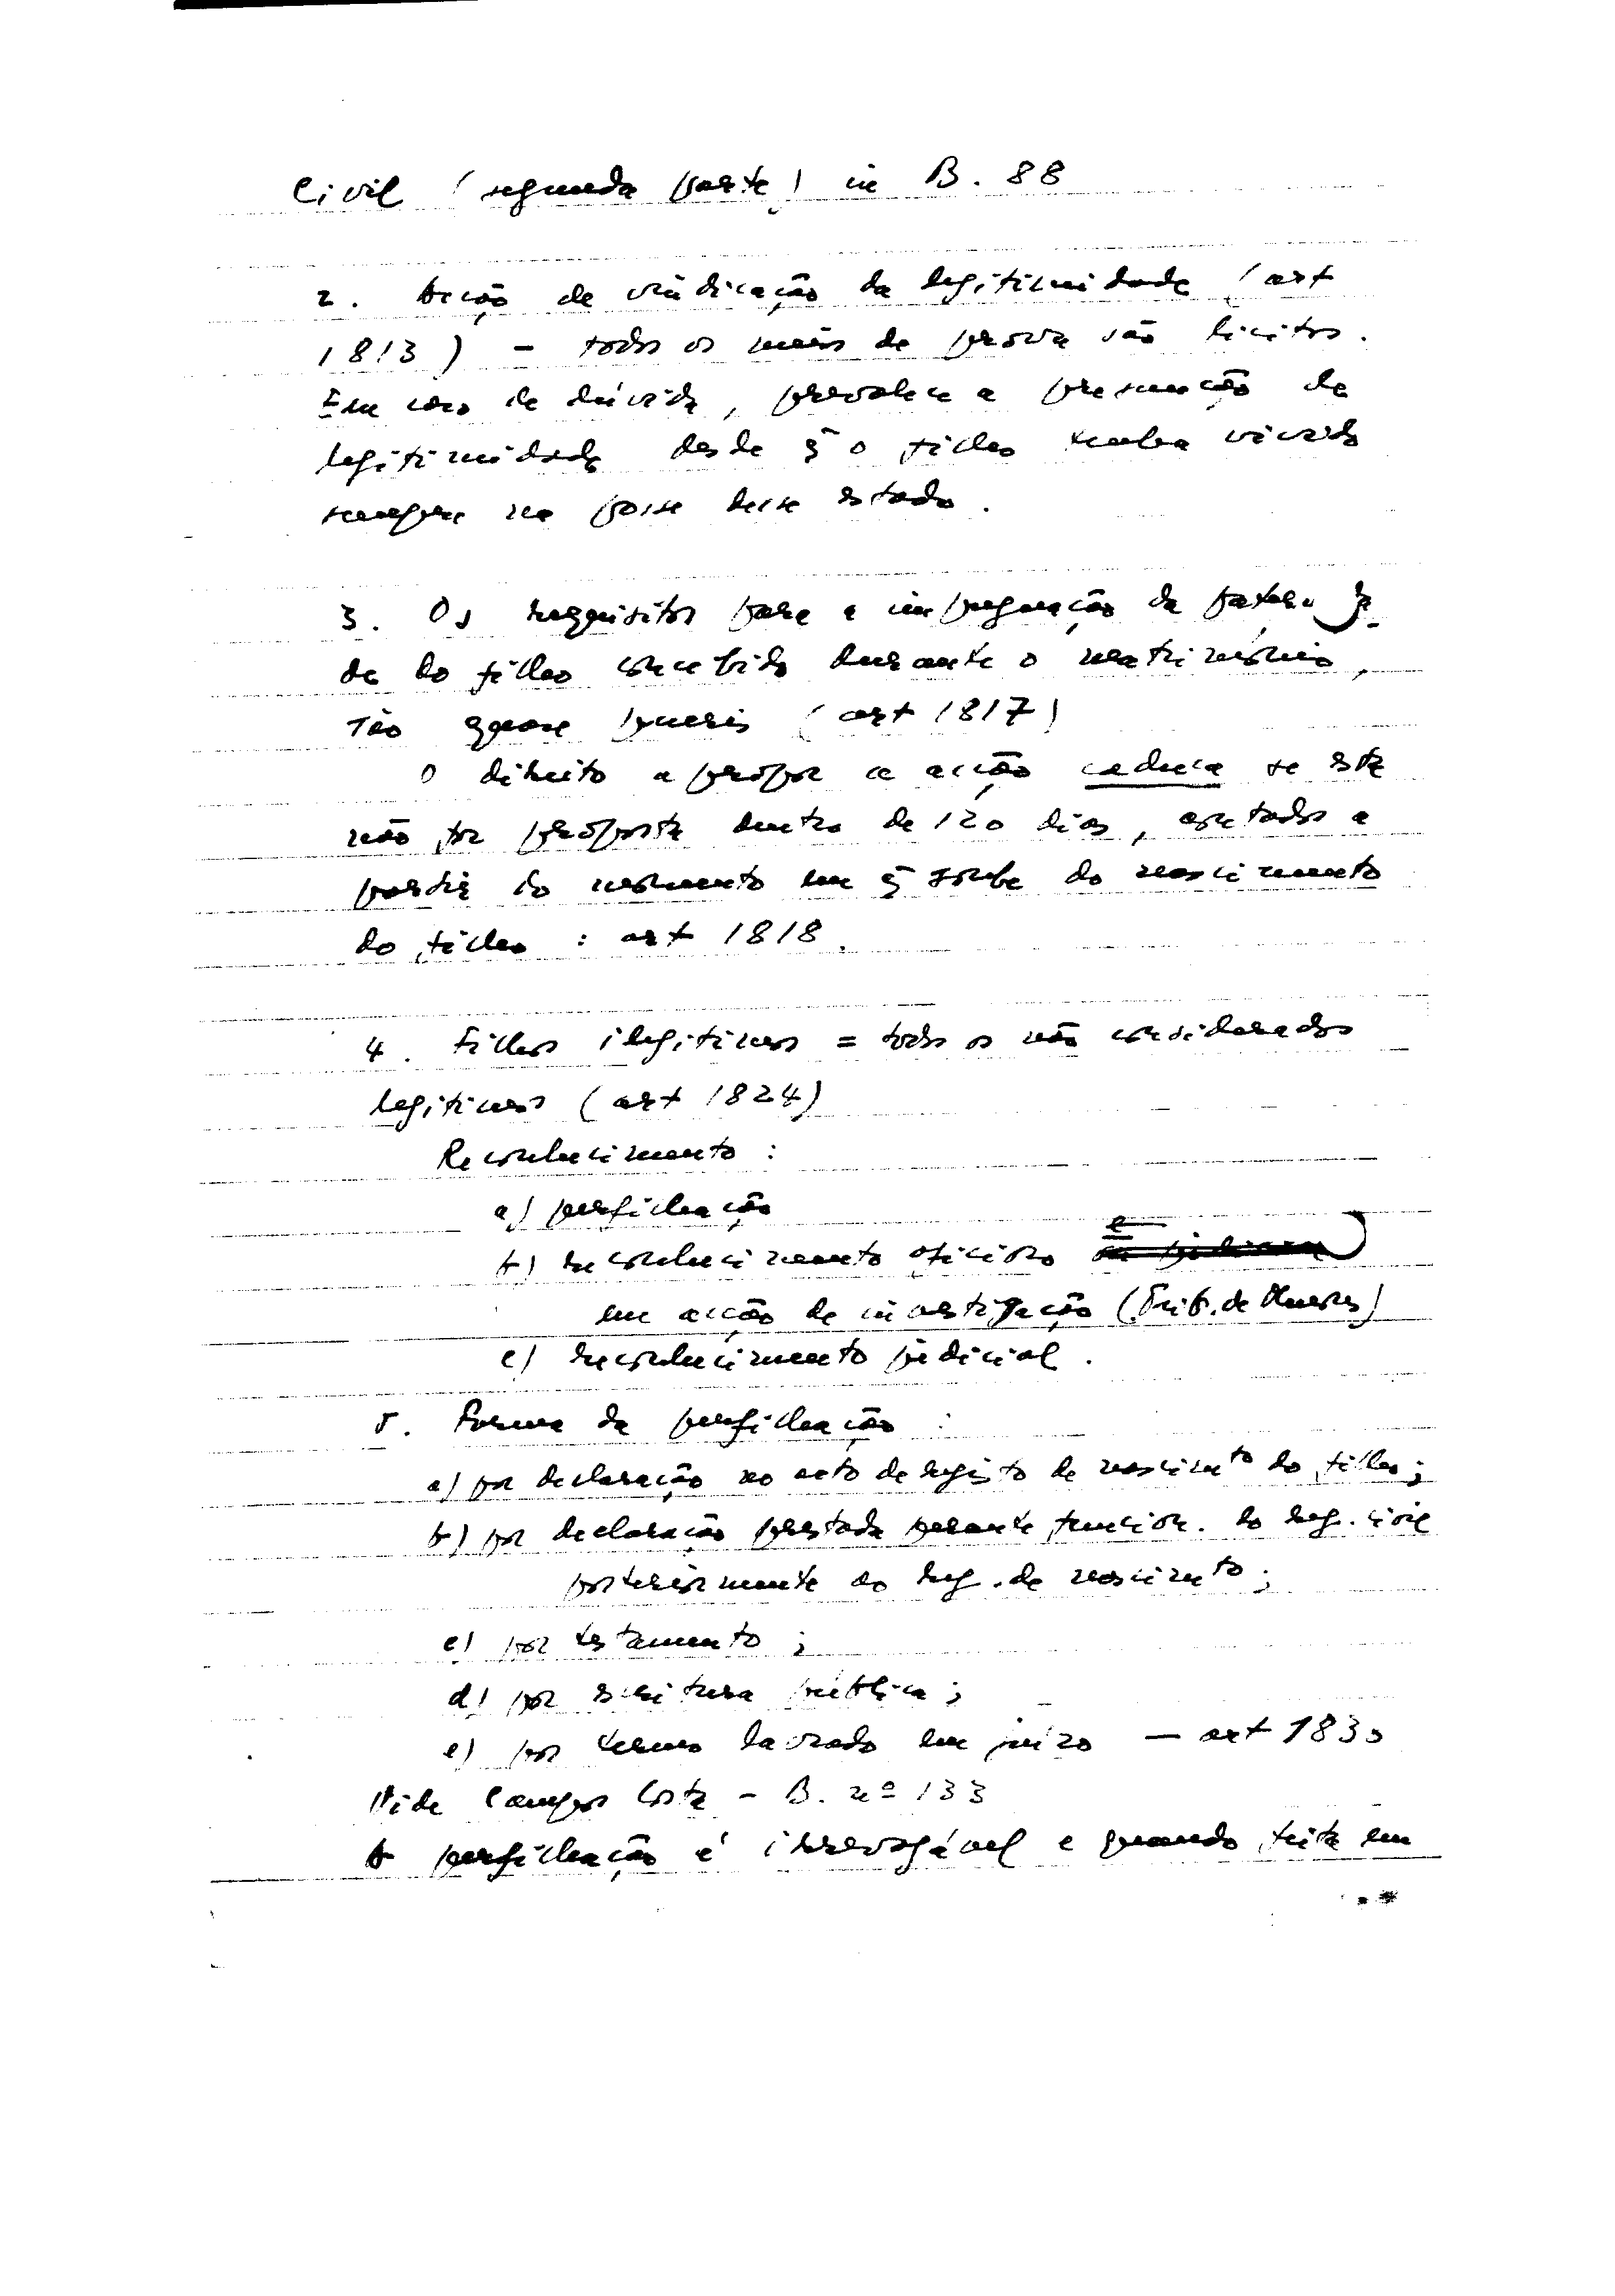 Civil (segunda parte) in B. 88
2. Acção de vindicação da legitimidade (art
1813) - todos os meios de prova são lícitos.
Em caso de dúvida, prevalece a presunção de
legitimidade desde q̃ o filho tenha vivido
sempre na posse desse estado.
3. Os requisitos para a impugnação da paterni
de do filho concebido durante o matrimónio,
são quase iguais (art 1817)
O direito a propor a acção caduca se esta
não for proposta dentro de 120 dias, contados a
partir do momento em q̃ soube do nascimento
do filho : art 1818.
4. Filhos ilegítimos = todos os não considerados
legítimos (art 1824)
Reconhecimento :
a) perfilhação
b) reconhecimento oficioso e
em acção de investigação (Trib. de Menores)
c) reconhecimento judicial.
5. Forma da perfilhação :
a) por declaração no acto de registo de nascimto do filho;
b) por declaração prestada perante funcion. do reg. civil
posteriormente ao reg. de nascimto;
c) por testamento ;
d) por escritura pública ;
e) por termo lavrado em juízo — art 1830
Vide Campos Costa - B. nº 133
A perfilhação é irrevogável e quando feita em